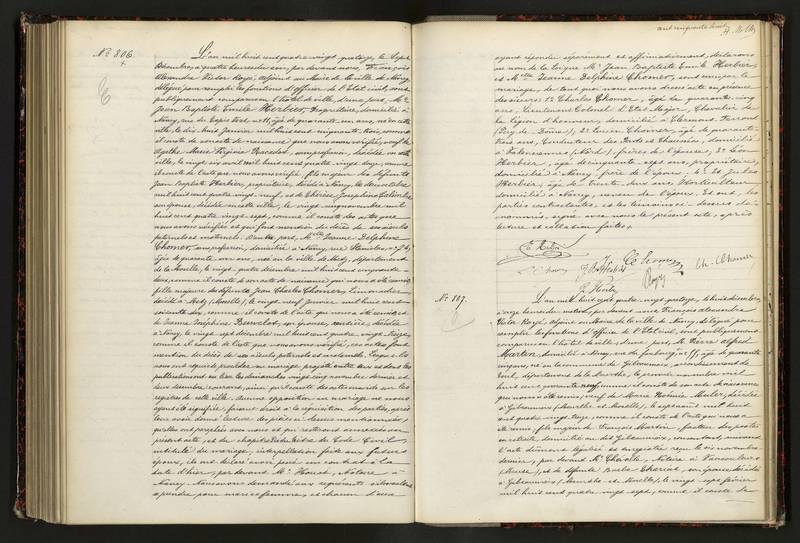 ant cinquante huit
N° 806.
L'an mil huit cent quatre vingt quatorze, le sept
décembre, à quatre heures du soir, par devant nous, François
Alexandre Victor Rozé, adjoint au Maire de la ville de Nancy
délégué pour remplir les fonctions d'officier de l'Etat civil, sont
publiquement comparus en l'hôtel de ville, d'une part, Mr
Jean Baptiste Emile Herbier, propriétaire, domicilié à
Nancy, rue n° 11, âgé de quarante un ans, né en cette
ville, le dix huit janvier mil huit cent cinquante trois, comme
il conste de son acte de naissance que nous avons vérifié, veuf de
Agathe Marie sans profession, décédée en cette
ville, le vingt six avril mil huit cent quatre vingt onze, comme
il conste de l'acte que nous avons vérifié, fils majeur des défunts
Jean Baptiste Herbier, propriétaire, décédé à Nancy, le deux octobre
mil huit cent quatre vingt neuf, et de Thérèse Joséphine
son épouse, décédée en cette ville, le vingt cinq novembre mil
huit cent quatre vingt sept, comme il conste des actes que
nous avons vérifiés et qui font mention du décès de ses aïeuls
paternels et maternels. D'autre part, Melle Jeanne Delphine
Chomer, sans profession, domiciliée à Nancy, rue Stanislas, n° 54,
âgée de quarante un ans, née en la ville de Metz, département
de la Moselle, le vingt quatre décembre mil huit cent cinquante
deux, comme il conste de son acte de naissance qui nous a été remis,
fille majeure des défunts Jean Charles Chomer, Limonadier
décédé à Metz (Moselle), le vingt neuf janvier mil huit cent
soixante dix, comme il conste de l'acte qui nous a été remis et
de Jeanne Joséphine son épouse, rentière, décédée
à Nancy, le vingt sept décembre mil huit cent quatre vingt treize,
comme il conste de l'acte que nous avons vérifié, ces actes font
mention des décès de ses aïeuls paternels et maternels. Lesquels
nous ont requis de procéder au mariage projeté entre eux et dont les
publications ont eu lieu les dimanches vingt cinq novembre dernier et
deux décembre courant, ainsi qu'il conste des actes inscrits sur les
registres de cette ville. Aucune opposition au mariage ne nous
ayant été signifiée, faisant droit à la réquisition des parties, après
leur avoir donné lecture des pièces ci dessus mentionnées,
par elles ont paraphées avec nous et qui resteront annexées au
présent acte, et du chapitre six du titre du Code Civil
intitulé du mariage, interpellation faite aux futurs
époux, ils ont déclaré avoir passé un contrat à la
date d'hier, par devant Mr Houot, Notaire, à
Nancy. Nous avons demandé aux requérants s'ils voulaient
se prendre pour mari et femme, et chacun d'eux
ayant répondu séparément et affirmativement, déclarons
au nom de la Loi que Mr Jean Baptiste Emile Herbier
et Melle Jeanne Delphine Chomer, sont unis par le
mariage, de tout quoi nous avons dressé acte en présence
des sieurs: 1° Charles Chomer, âgé de quarante cinq
ans, Lieutenant Colonel d'Etat Major, Chevalier de
la Légion d'honneur, domicilié à Clermont Ferrand
(Puy de Dôme), 2° Lucien Chomer, âgé de quarante
trois ans, Conducteur des Ponts et Chaussées, domicilié
à Valenciennes (Nord), frères de l'épouse, 3° Léon
Herbier, âgé de cinquante sept ans, propriétaire,
domicilié à Nancy, frère de l'époux, 4° et Jules
Herbier, âgé de trente six ans, Horticulteur
domicilié à Nancy, neveu de l'époux. Et ont, les
parties contractantes, et les témoins ci-dessus dé
nommés, signé avec nous le présent acte, après
lecture et collation faites.
Ch. Chomer
Rozé
N° 807.
L'an mil huit cent quatre vingt quatorze, le huit décembre,
à onze heures du matin, par devant nous François Alexandre
Victor Rozé, adjoint au Maire de la ville de Nancy, délégué pour
remplir les fonctions d'officier de l'Etat civil, sont publiquement
comparus en l'hôtel de ville, d'une part, Mr Pierre Alfred
Martin, domicilié à Nancy, rue du faubourg n° 55, âgé de quarante
cinq ans, né en la commune de Gibeaumeix, arrondissement de
Toul, département de la Meurthe, le premier novembre mil
huit cent quarante neuf, comme il conste de son acte de naissance
qui nous a été remis; veuf de Marie Noémie Muller, décédée
à Gibeaumeix (Meurthe et Moselle), le sept août mil huit
cent quatre vingt, comme il conste de l'acte qui nous a
été remis, fils majeur de François Martin, facteur des postes
en retraite domicilié au dit Gibeaumeix, consentant, suivant
l'acte dûment légalisé et enregistré reçu le six novembre
dernier, par devant Mr Notaire à Vaucouleurs
(Meuse), et de défunte Barbe son épouse, décédée
à Gibeaumeix (Meurthe et Moselle), le vingt sept février
mil huit cent quatre vingt sept, comme il conste de